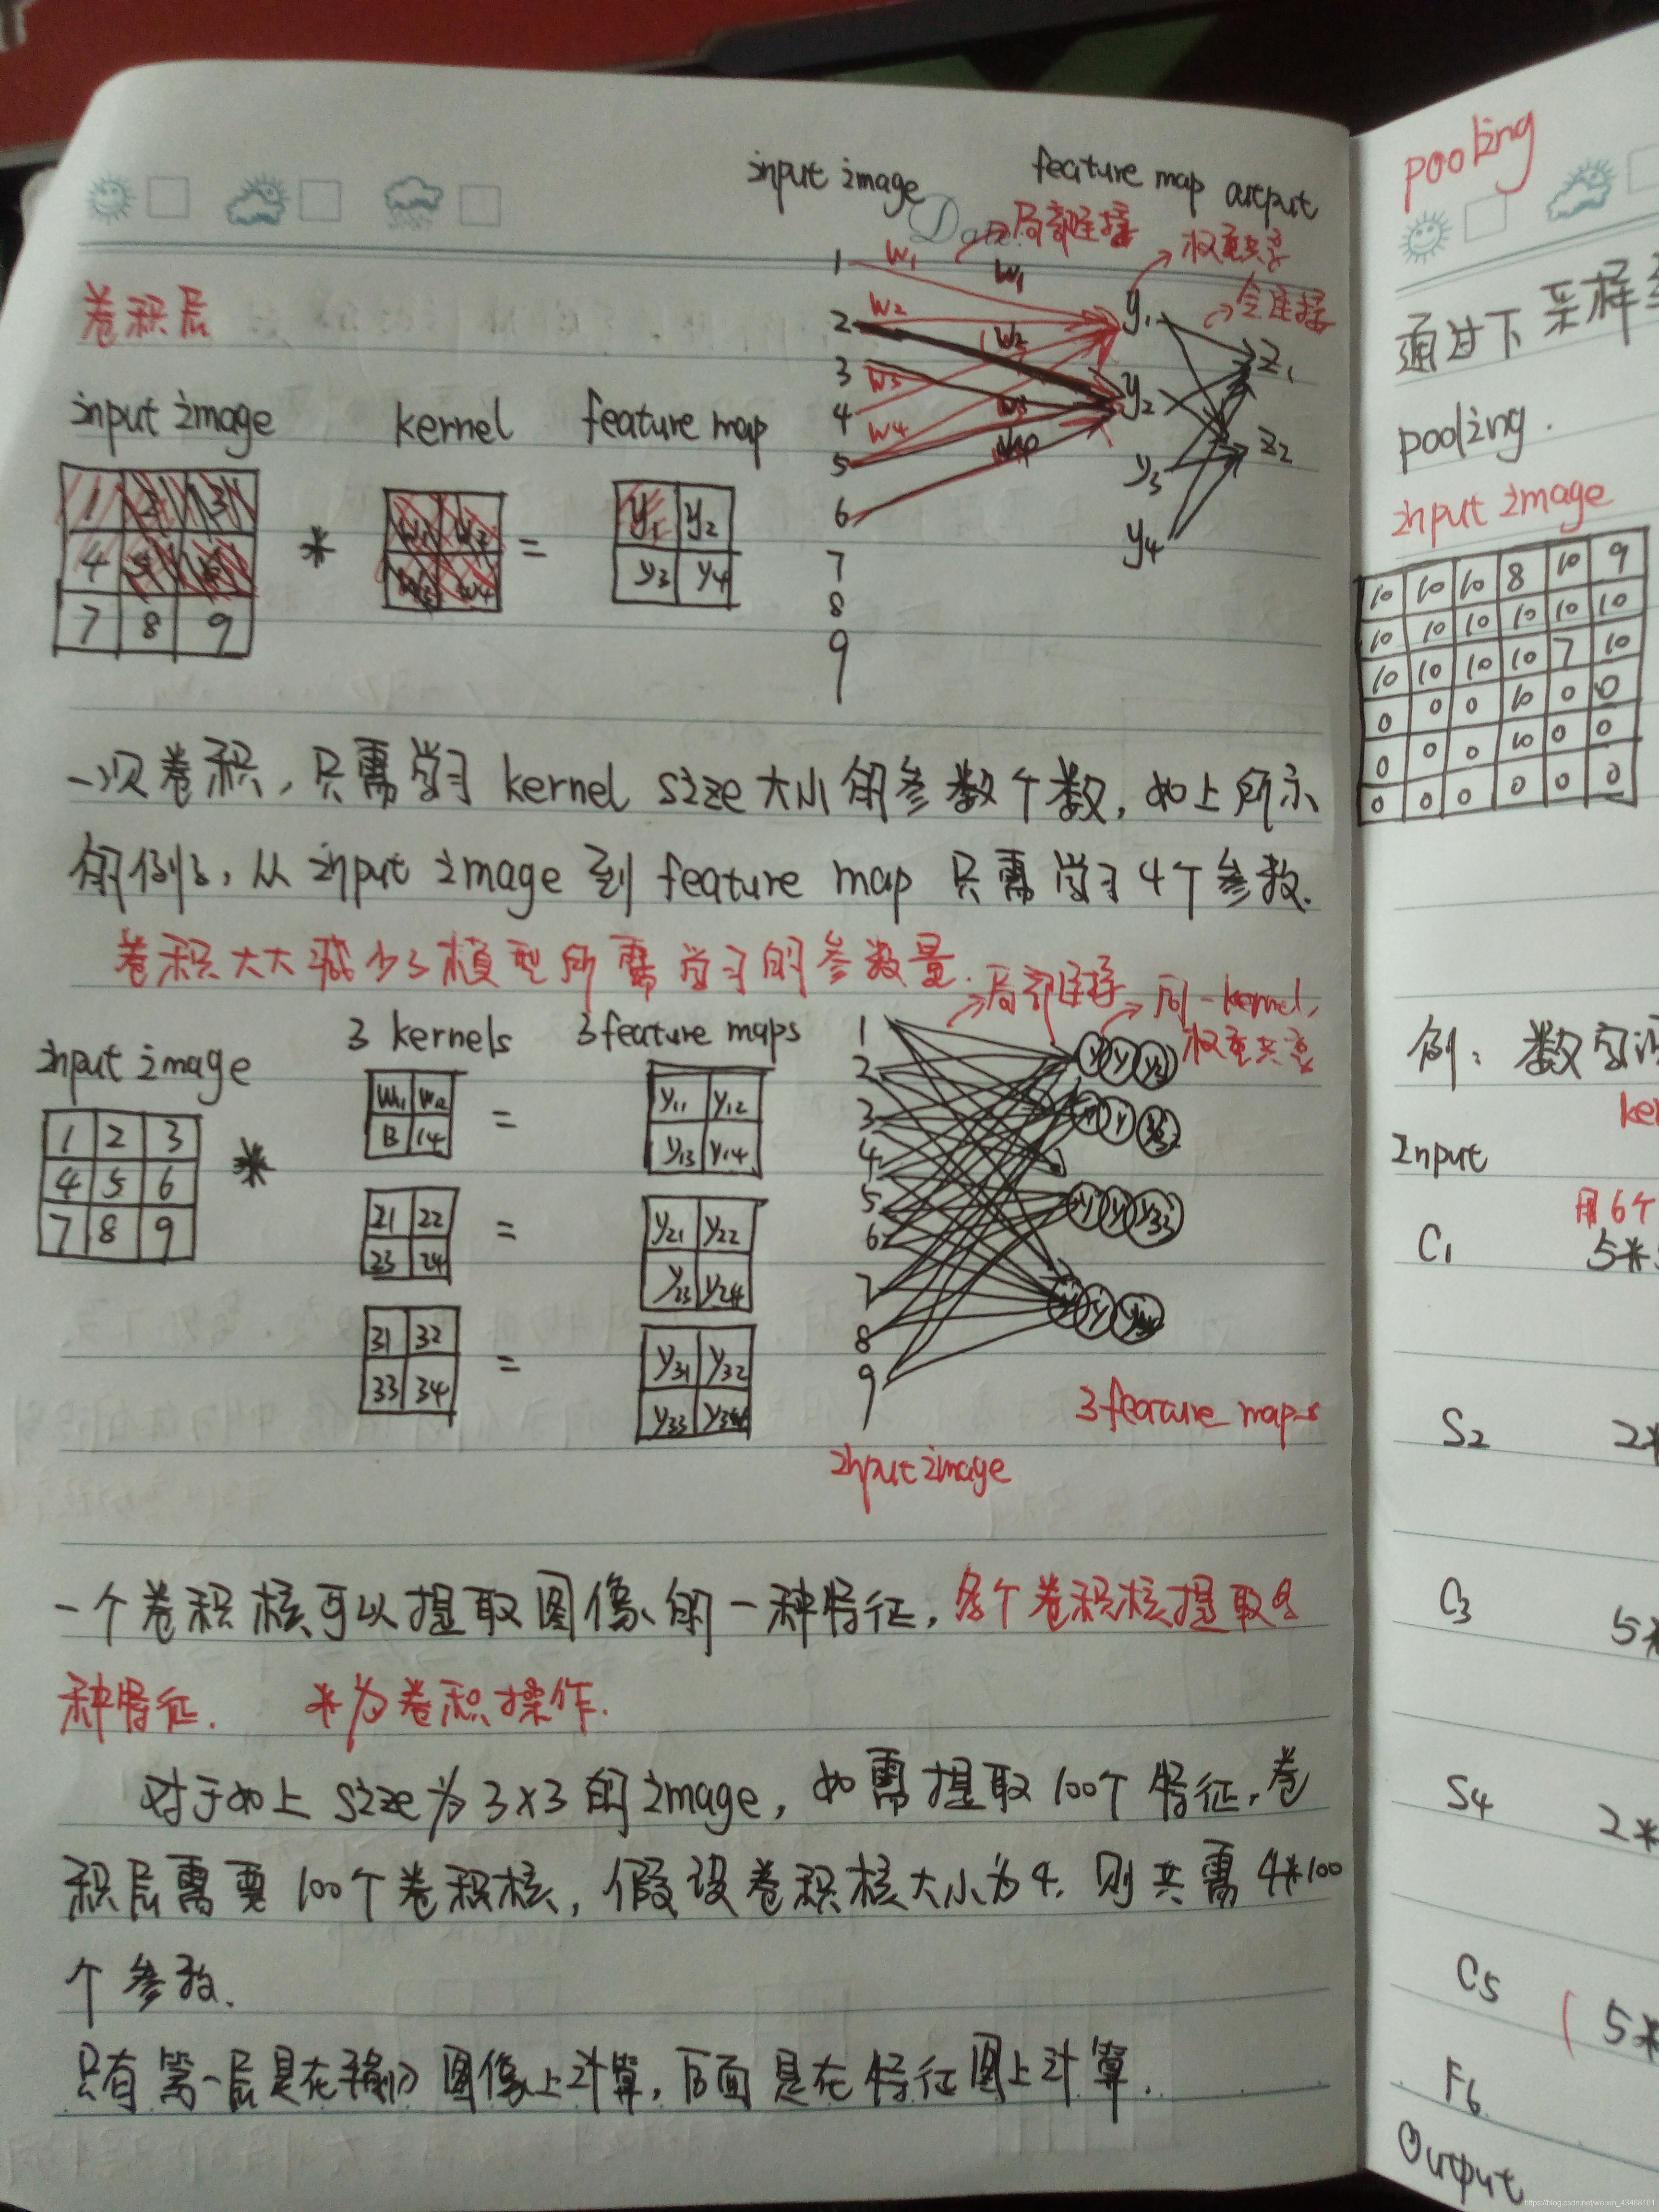 input image
feature map
output
Date
局部连接
权重共享
全连接
卷积层
input image
kernel
feature map
1 2 3
4 5 6
7 8 9
*
w1 w2
w3 w4
=
y1 y2
y3 y4
1
2
3
4
5
6
7
8
9
w1
w2
w3
w4
w1
w2
w3
y1
y2
y3
y4
z1
z2
一次卷积，只需学习 kernel size 大小的参数个数，如上所示
的例子，从 input image 到 feature map 只需学习4个参数.
卷积大大减少了模型所需学习的参数量.
局部连接
同一kernel,
权重共享
input image
3 kernels
3 feature maps
1 2 3
4 5 6
7 8 9
*
w11 w12
13 14
=
y11 y12
y13 y14
21 22
23 24
=
y21 y22
y23 y24
31 32
33 34
=
y31 y32
y33 y34
1
2
3
4
5
6
7
8
9
3 feature maps
input image
一个卷积核可以提取图像的一种特征，多个卷积核提取多
种特征. *为卷积操作.
对于如上 size 为 3×3 的 image，如需提取 100个特征，卷
积层需要 100个卷积核，假设卷积核大小为4，则共需 4*100
个参数.
图像上计算，后面是在特征图上计算.
pooling
通过下采样
pooling.
input image
10 10 10 8 10 9
10 10 10 10 10 10
10 10 10 10 7 10
0 0 0 10 0 0
0 0 0 10 0 0
0 0 0 0 0 0
例：数字
Input
用6个
C1 5*5
S2 2*
C3 5*
S4 2*
C5 (5*
F6
Output
https://blog.csdn.net/weixin_43468161